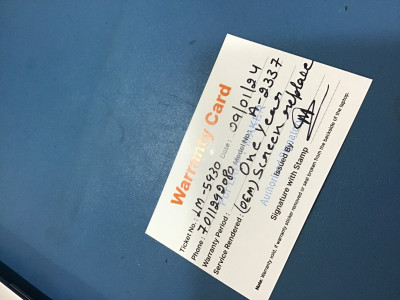 Warranty Card
Ticket No.: LM-5930 Date: 09/01/24
Phone: 7011292080 Model No.: A 2337
Warranty Period: One Year
Service Rendered: (OEM) Screen replace
Issued By
Signature with Stamp
Note: Warranty void, if warranty sticker removed or seal broken from the backside of the laptop.